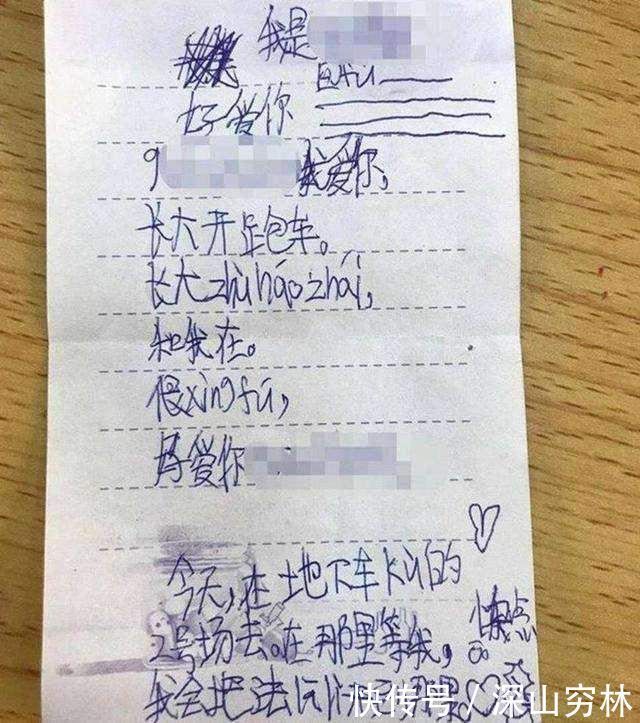 我是
好爱你
我爱你,
长大开跑车。
长大zhù háo zhái,
和我在。
很xìng fú,
好爱你
今天,在地下车kù的
2号场去。在那里等我, 快点
我会把
快传号/深山穷林